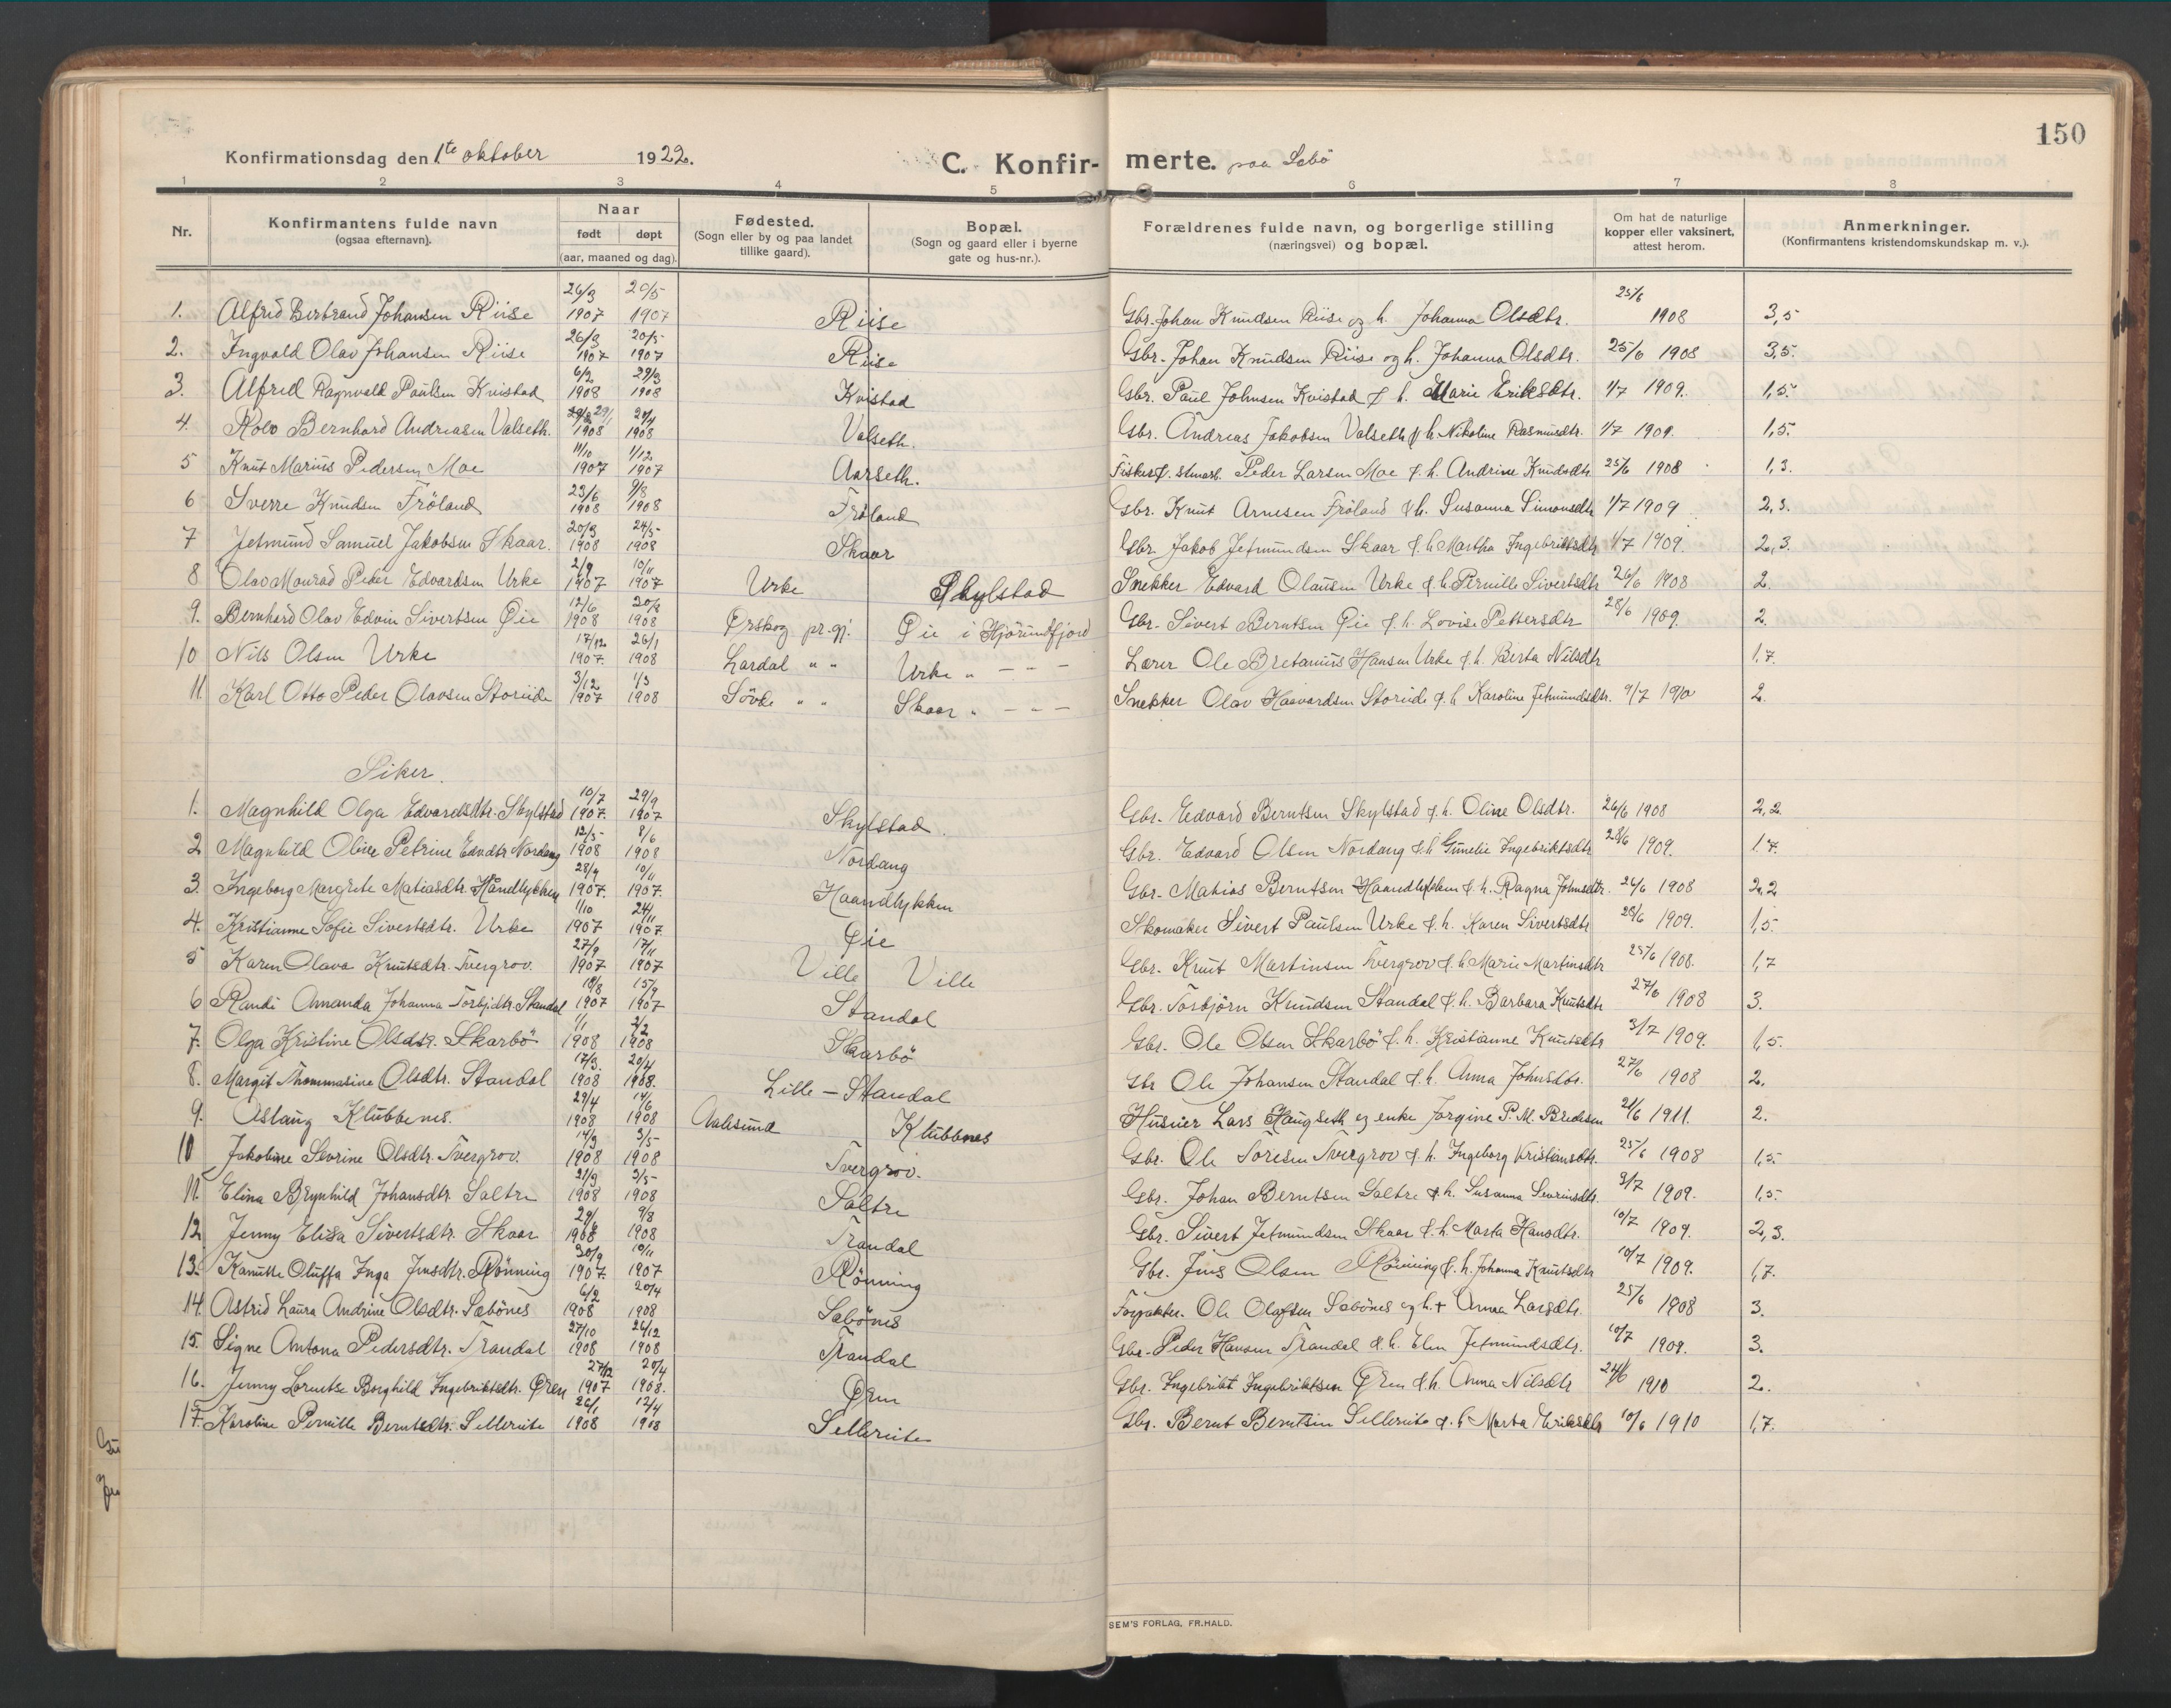 150
Konfirmationsdag den 1te oktober 1922. C. Konfir- merte. paa Sæbö
1 2 3 4 5 6 7 8
Nr. Konfirmantens fulde navn (ogsaa efternavn). Naar født døpt (aar, maaned og dag). Fødested. (Sogn eller by og paa landet tillike gaard). Bopæl. (Sogn og gaard eller i byerne gate og hus-nr.). Forældrenes fulde navn, og borgerlige stilling (næringsvei) og bopæl. Om hat de naturlige kopper eller vaksinert, attest herom. Anmerkninger. (Konfirmantens kristendomskundskap m. v.).
1. Alfred Bertrand Johansen Riise 26/3 1907 20/5 1907 Riise Gbr. Johan Knudsen Riise og h. Johanna Olsdtr. 25/6 1908 3,5
2. Ingvald Olav Johansen Riise 26/3 1907 20/5 1907 Riise Gbr. Johan Knudsen Riise og h. Johanna Olsdtr. 25/6 1908 3,5.
3. Alfred Ragnvald Paulsen Kvistad 6/2 1908 29/3 1908 Kvistad Gbr. Paul Johnsen Kvistad & h. Marie Eriksdtr. 1/7 1909. 1,5.
4. Rolv Bernhard Andreasen Valseth. 1908 1908 Valseth. Gbr. Andreas Jakobsen Valseth & h. Nikoline Rasmusdtr. 1/7 1909. 1,5.
5 Knut Marius Pedersen Moe 11/10 1907 1/12 1907 Aarseth. Fisker & Peder Larsen Moe & h. Andrine Knudsdtr. 25/6 1908 1,3.
6 Sverre Knudsen Fröland 23/6 1908 9/8 1908 Fröland Gbr. Knut Arnesen Fröland & h. Susanna Simonsdtr 1/7 1909 2,3.
7 Jetmund Samuel Jakobsen Skaar. 20/3 1908 24/5 1908 Skaar Gbr. Jakob Jetmundsen Skaar & h. Martha Ingebriktsdtr 1/7 1909. 2,3.
8 Olav Monrad Peder Edvardsen Urke 2/9 1907 10/11 1907 Urke Skylstad Snekker Edvard Olausen Urke & h. Pernille Sivertsdtr 26/6 1908 2.
9. Bernhard Olav Edvin Sivertsen Øie 12/6 1908 30/8 1908 Ørskog pr.gj. Øie i Hjörundfjord Gbr. Sivert Berntsen Øie & h. Lovise Pettersdtr 28/6 1909. 2.
10 Nils Olsen Urke 17/12 1907. 26/1 1908 Lardal " " Urke " — " — Lærer Ole Bretanius Hansen Urke & h. Berta Nilsdtr 1,7.
11. Karl Otto Peder Olavsen Storeide 3/12 1907 1/3 1908 Sövde " " Skaar " — " — Snekker Olav Haavardsen Storeide & h Karoline Jetmundsdtr. 9/7 1910 2.
Piker.
1. Magnhild Olga Edvardsdtr. Skylstad 10/7 1907. 29/9 1907 Skylstad. Gbr. Edvard Berntsen Skylstad & h. Oline Olsdtr. 26/6 1908 2,2.
2 Magnhild Oline Petrine Edvdtr Nordang 12/5 1908 8/6 1908 Nordang Gbr. Edvard Olsen Nordang & h. Gunelie Ingebriktsdtr 28/6 1909. 1,7.
3. Ingeborg Margrete Matiasdtr. Håndlykken 28/9 1907. 10/11 1907. Haandlykken Gbr. Matias Berntsen Haandlykken & h. Ragna Johnsdtr. 26/6 1908 2,2
4. Kristianne Sofie Sivertsdtr. Urke 1/10 1907 24/11 1907. Øie Skomaker Sivert Paulsen Urke & h. Karen Sivertsdtr 28/6 1909. 1,5.
5 Karen Olava Knutsdtr. Tvergrov. 27/9 1907 17/11 1907 Ville Ville Gbr. Knut Martinsen Tvergrov & h. Marie Martinsdtr 25/6 1908. 1,7
6 Randi Amanda Johanna Torbjdtr. Standal 18/8 1907 15/9 1907 Standal Gbr. Torbjörn Knudsen Standal & h. Barbara Knutsdtr 27/6 1908 3.
7. Olga Kristine Olsdtr. Skarbö 1/1 1908 2/2 1908 Skarbö Gbr. Ole Olsen Skarbö & h. Kristianne Knutsdtr 3/7 1909. 1,5.
8. Margit Thommasine Olsdtr. Standal 17/3. 1908 20/4 1908. Lille — Standal Gbr Ole Johansen Standal & h. Anna Johnsdtr. 27/6 1908 2.
9. Aslaug Klubbenes. 29/4 1908 14/6 1908 Aalesund Klubbnes Huseier Lars Haugseth og enke Jorgine P. M. Bredesen 21/6 1911. 2.
10 Jakobine Sevrine Olsdtr. Tvergrov. 14/3 1908 3/5 1908 Tvergrov. Gbr. Ole Toresen Tvergrov & h. Ingeborg Kristiansdtr. 25/6 1908 1,5.
11. Elina Brynhild Johansdtr. Saltre 21/3 1908 3/5 1908 Saltre Gbr. Johan Berntsen Saltre & h. Susanna Sevrinsdtr. 3/7 1909. 1,5.
12. Jenny Elisa Sivertsdtr. Skaar 29/6 1908 9/8 1908 Trandal Gbr. Sivert Jetmundsen Skaar & h. Marta Hansdtr. 10/7 1909. 2,3.
13. Kanutte Oluffa Inga Jensdtr. Rönning 30/9 1907. 10/11 1907 Rönning Gbr. Jens Olsen Rönning & h. Johanna Knutsdtr 10/7 1909. 1,7.
14. Astrid Laura Andrine Olsdtr. Sæbönes 6/2 1908 20/4 1908 Sæbönes Forpakter. Ole Olafsen Sæbönes og h. + Anna Larsdtr. 25/6 1908 3.
15. Signe Antona Pedersdtr. Trandal 27/10 1908 26/12 1908 Trandal Gbr. Peder Hansen Trandal & h. Elen Jetmundsdtr. 10/7 1909. 3.
16. Jenny Lorentse Borghild Ingebriktsdtr. Øren 27/12 1907 20/4 1908. Øren Gbr. Ingebrikt Ingebriktsen Øren & h. Anna Nilsdtr 24/6 1910 2.
17. Karoline Pernille Berntsdtr. Sellereite 26/1 1908 12/4 1908 Sellereite Gbr. Bernt Berntsen Sellereite & h Marta Eriksdtr 10/6 1910 1,7.
SEM'S FORLAG, FR.HALD.